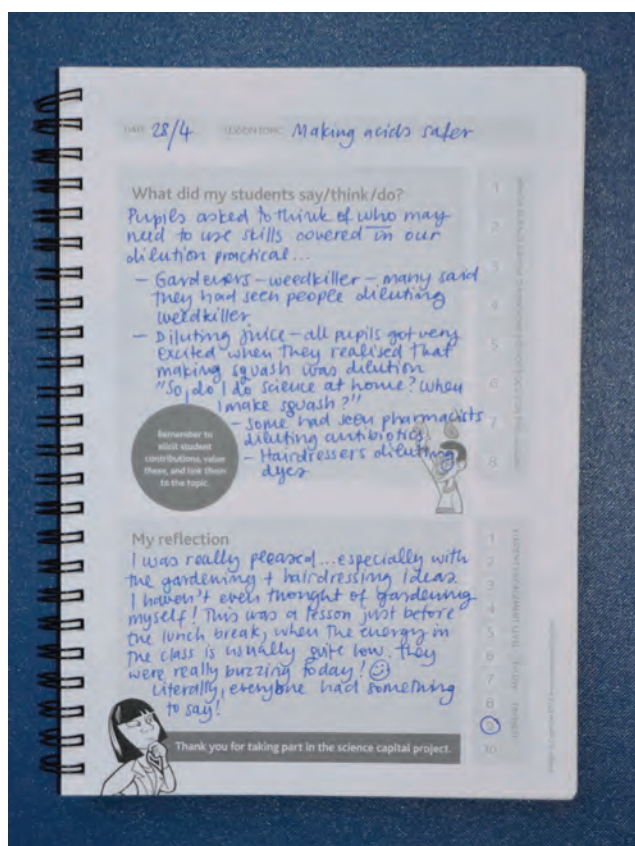 DATE 28/4 LESSON TOPIC Making acids safer
What did my students say/think/do?
Pupils asked to think of who may
need to use skills covered in our
dilution practical...
– Gardeners – weedkiller – many said
they had seen people diluting
weedkiller
– Diluting juice – all pupils got very
excited when they realised that
making squash was dilution
"So, do I do science at home? When
I make squash?"
– Some had seen pharmacists
diluting antibiotics
– Hairdressers diluting
dyes
Remember to
elicit student
contributions, value
these, and link them
to the topic.
1
2
3
4
5
6
7
8
My reflection
I was really pleased... especially with
the gardening + hairdressing ideas.
I haven't even thought of gardening
myself! This was a lesson just before
the lunch break, when the energy in
the class is usually quite low. They
were really buzzing today! ☺
Literally, everyone had something
to say!
1
2
3
4
5
6
7
8
9
10
STUDENT ENGAGEMENT LEVEL
Thank you for taking part in the science capital project.